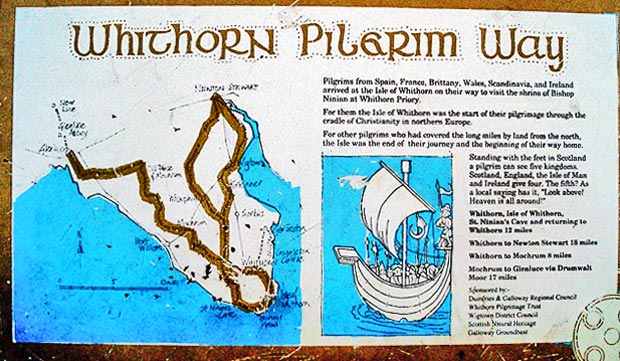 Whithorn Pilgrim Way
Pilgrims from Spain, France, Brittany, Wales, Scandinavia, and Ireland
arrived at the Isle of Whithorn on their way to visit the shrine of Bishop
Ninian at Whithorn Priory.
For them the Isle of Whithorn was the start of their pilgrimage through the
cradle of Christianity in northern Europe.
For other pilgrims who had covered the long miles by land from the north,
the Isle was the end of their journey and the beginning of their way home.
Standing with the feet in Scotland
a pilgrim can see five kingdoms.
Scotland, England, the Isle of Man
and Ireland give four. The fifth? As
a local saying has it, "Look above!
Heaven is all around!"
Whithorn, Isle of Whithorn,
St. Ninian's Cave and returning to
Whithorn 12 miles
Whithorn to Newton Stewart 18 miles
Whithorn to Mochrum 8 miles
Mochrum to Glenluce via Drumwalt
Moor 17 miles
Sponsored by:-
Dumfries & Galloway Regional Council
Whithorn Pilgrimage Trust
Wigtown District Council
Scottish Natural Heritage
Galloway Groundbase
Newton Stewart
New Luce
Glenluce
Abbey
Wigtown
Sorbie
Mochrum
Port
William
St Ninian's
Cave